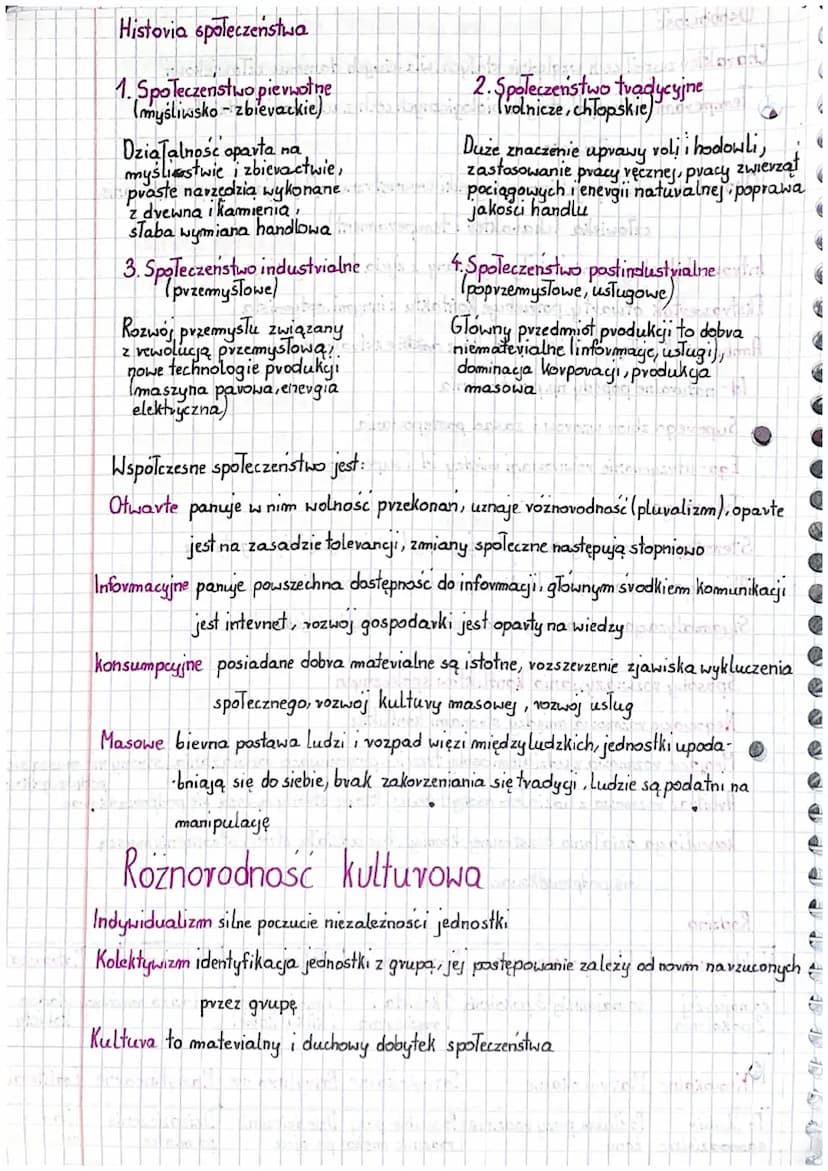 Historia społeczeństwa
1. Społeczeństwo pierwotne
(myśliwsko-zbierackie)
Działalność oparta na
myśliwstwie i zbieractwie,
proste narzędzia wykonane
z drewna i kamienia,
słaba wymiana handlowa
2. Społeczeństwo tradycyjne
(rolnicze, chłopskie)
Duże znaczenie uprawy roli i hodowli,
zastosowanie pracy ręcznej, pracy zwierząt
pociągowych i energii naturalnej, poprawa
jakości handlu
3. Społeczeństwo industrialne
(przemysłowe)
Rozwój przemysłu związany
z rewolucją przemysłową,
nowe technologie produkcji
(maszyna parowa, energia
elektryczna)
4. Społeczeństwo postindustrialne
(poprzemysłowe, usługowe)
Główny przedmiot produkcji to dobra
niematerialne (informacje, usługi),
dominacja korporacji, produkcja
masowa
Współczesne społeczeństwo jest:
Otwarte panuje w nim wolność przekonań, uznaje różnorodność (pluralizm), oparte
jest na zasadzie tolerancji, zmiany społeczne następują stopniowo
Informacyjne panuje powszechna dostępność do informacji, głównym środkiem komunikacji
jest internet, rozwój gospodarki jest oparty na wiedzy
konsumpcyjne posiadane dobra materialne są istotne, rozszerzenie zjawiska wykluczenia
społecznego, rozwój kultury masowej, rozwój usług
Masowe bierna postawa ludzi i rozpad więzi międzyludzkich, jednostki upoda-
bniają się do siebie, brak zakorzeniania się tradycji, ludzie są podatni na
manipulację
Różnorodność kulturowa
Indywidualizm silne poczucie niezależności jednostki
Kolektywizm identyfikacja jednostki z grupą, jej postępowanie zależy od norm narzuconych
przez grupę
Kultura to materialny i duchowy dobytek społeczeństwa